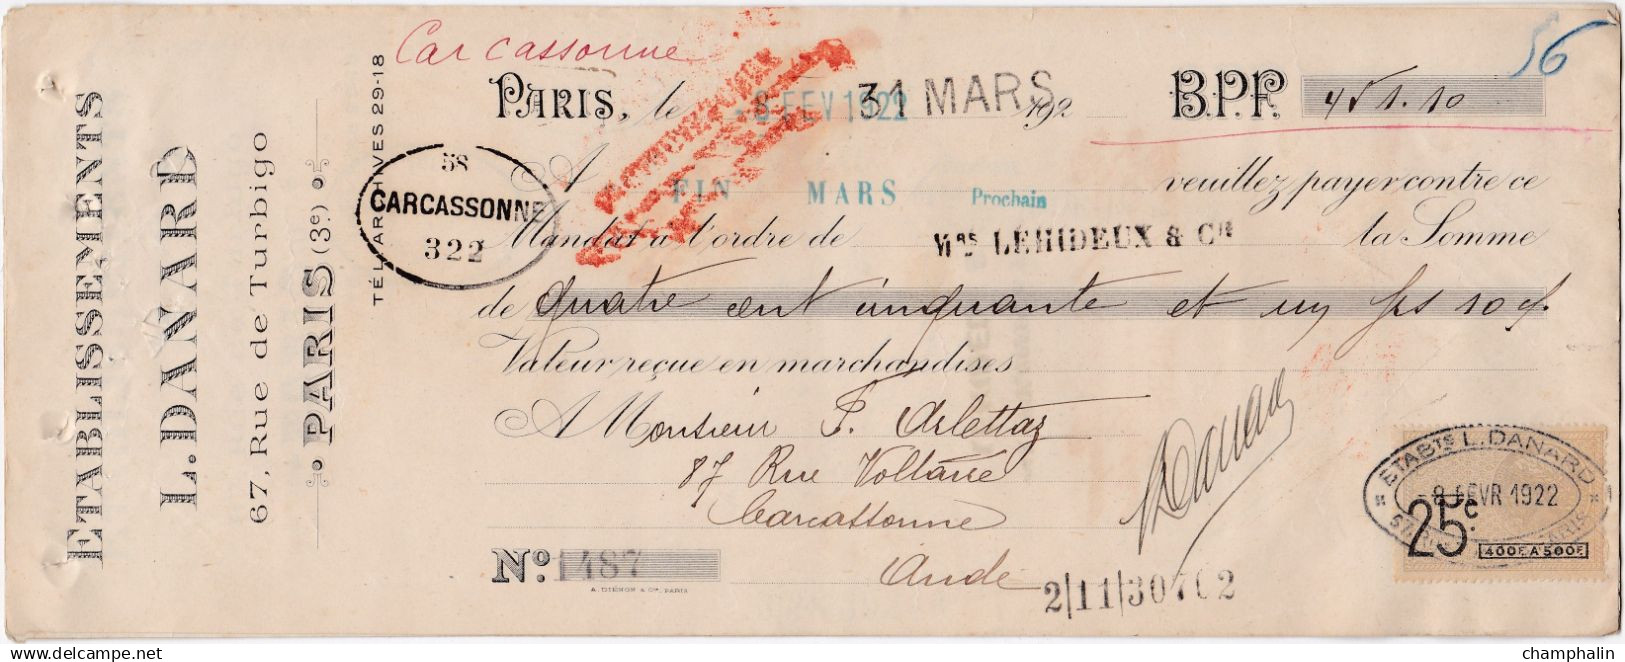 ETABLISSEMENTS
L. DANARD
67, Rue de Turbigo
PARIS (3e.)
TÉL. ARCHIVES 29-18
Carcassonne
56
PARIS, le - 8 FEV 1922 31 MARS 192
B.P.F. 451.10
58
CARCASSONNE
322
A FIN MARS Prochain veuillez payer contre ce
Mandat à l'ordre de LEHIDEUX & Cie la Somme
de quatre cent cinquante et un frs 10 c.
Valeur reçue en marchandises
A Monsieur F. Arlettaz
87 Rue Voltaire
Carcassonne
Aude
L Danard
No. 1487
A. DIÉNON & Cie, PARIS
2/11/30702
ETABTS L. DANARD
- 8 FEVR 1922
25c.
400F. A 500F.
champhalin
delcampe.net